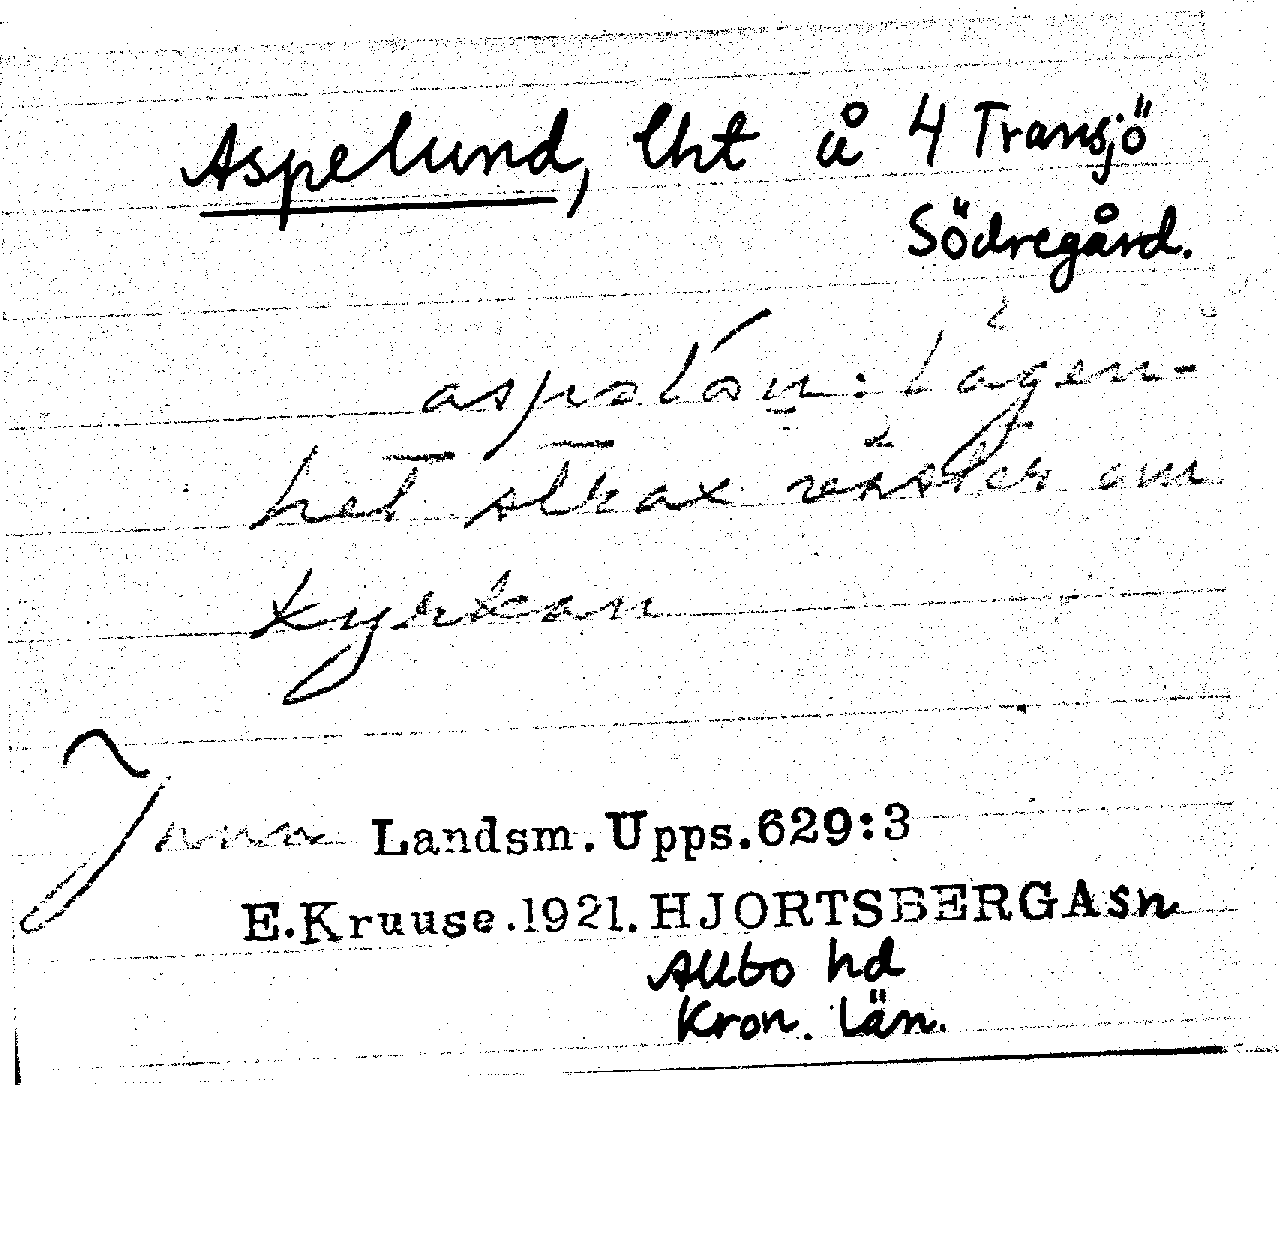 Aspelund, lht å 4 Transjö
Södregård.
lägen-
het strax väster om
kyrkan
Landsm. Upps. 629:3
E. Kruuse. 1921. HJORTSBERGA sn
Allbo hd
Kron. län.